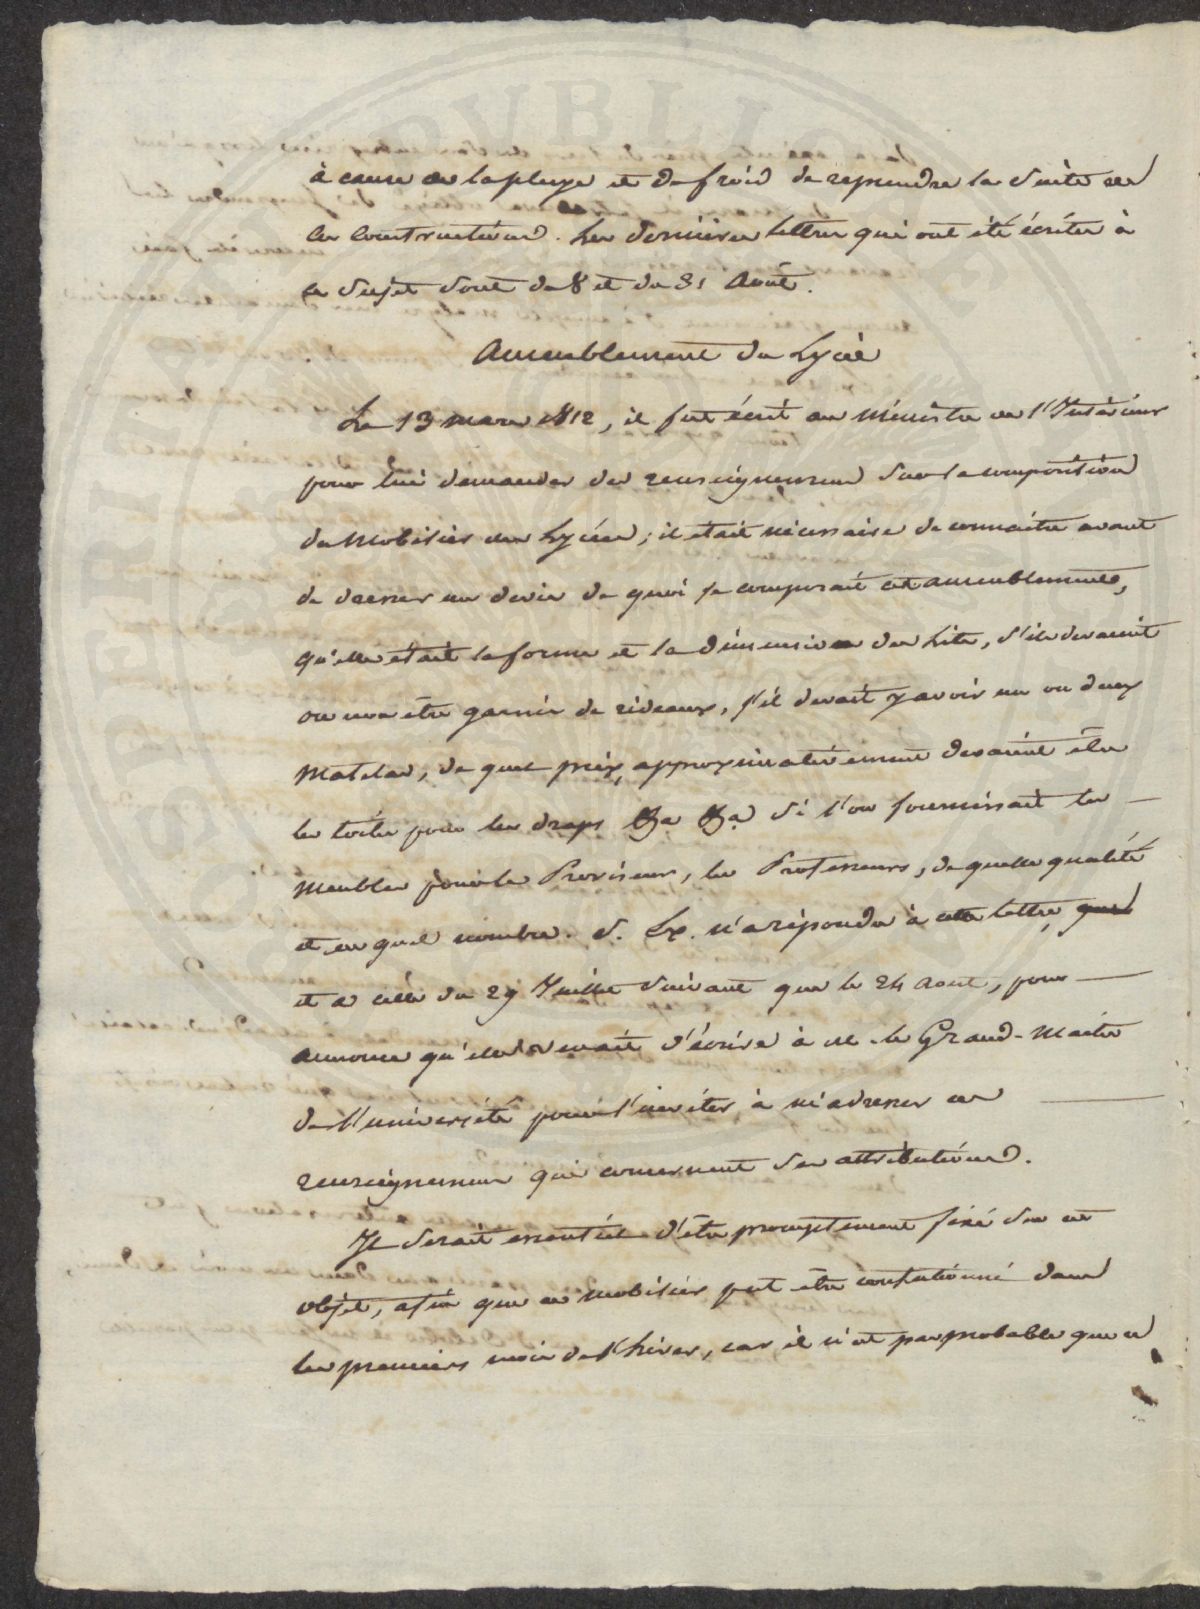 à cause de la pluye et du froid de reprendre la suite de
ces constructions. Les dernières lettres qui ont été écrites à
ce sujet sont du 8 et du 31 Août.
Ameublement du Lycée
Le 13 mars 1812, il fut écrit au Ministre de l'Intérieur
pour lui demander des renseignemens sur la composition
du Mobilier des Lycées; il était nécessaire de connaître avant
de dresser un devis de quoi se composait cet ameublement,
qu'elle était la forme et la dimension des Lits, s'ils devaient
ou non être garnis de rideaux, s'il devait y avoir un ou deux
Matelas, de quel prix approximativement devaient être
les toiles pour les draps &a &a si l'on fournissait les
Meubles pour le Proviseur, les Professeurs, de quelle qualité
et en quel nombre. S. Ex. n'a répondu à cette lettre,
et à celle du 29 Juillet suivant que le 24 Août, pour
annoncer qu'elle venait d'écrire à M. le Grand-Maître
de l'université pour l'inviter à m'adresser ces
renseignemens qui concernent ses attributions.
Il serait essentiel d'être promptement fixé sur cet
objet, afin que ce mobilier put être confectionné dans
les premiers mois de l'hiver, car il n'est pas probable que ce